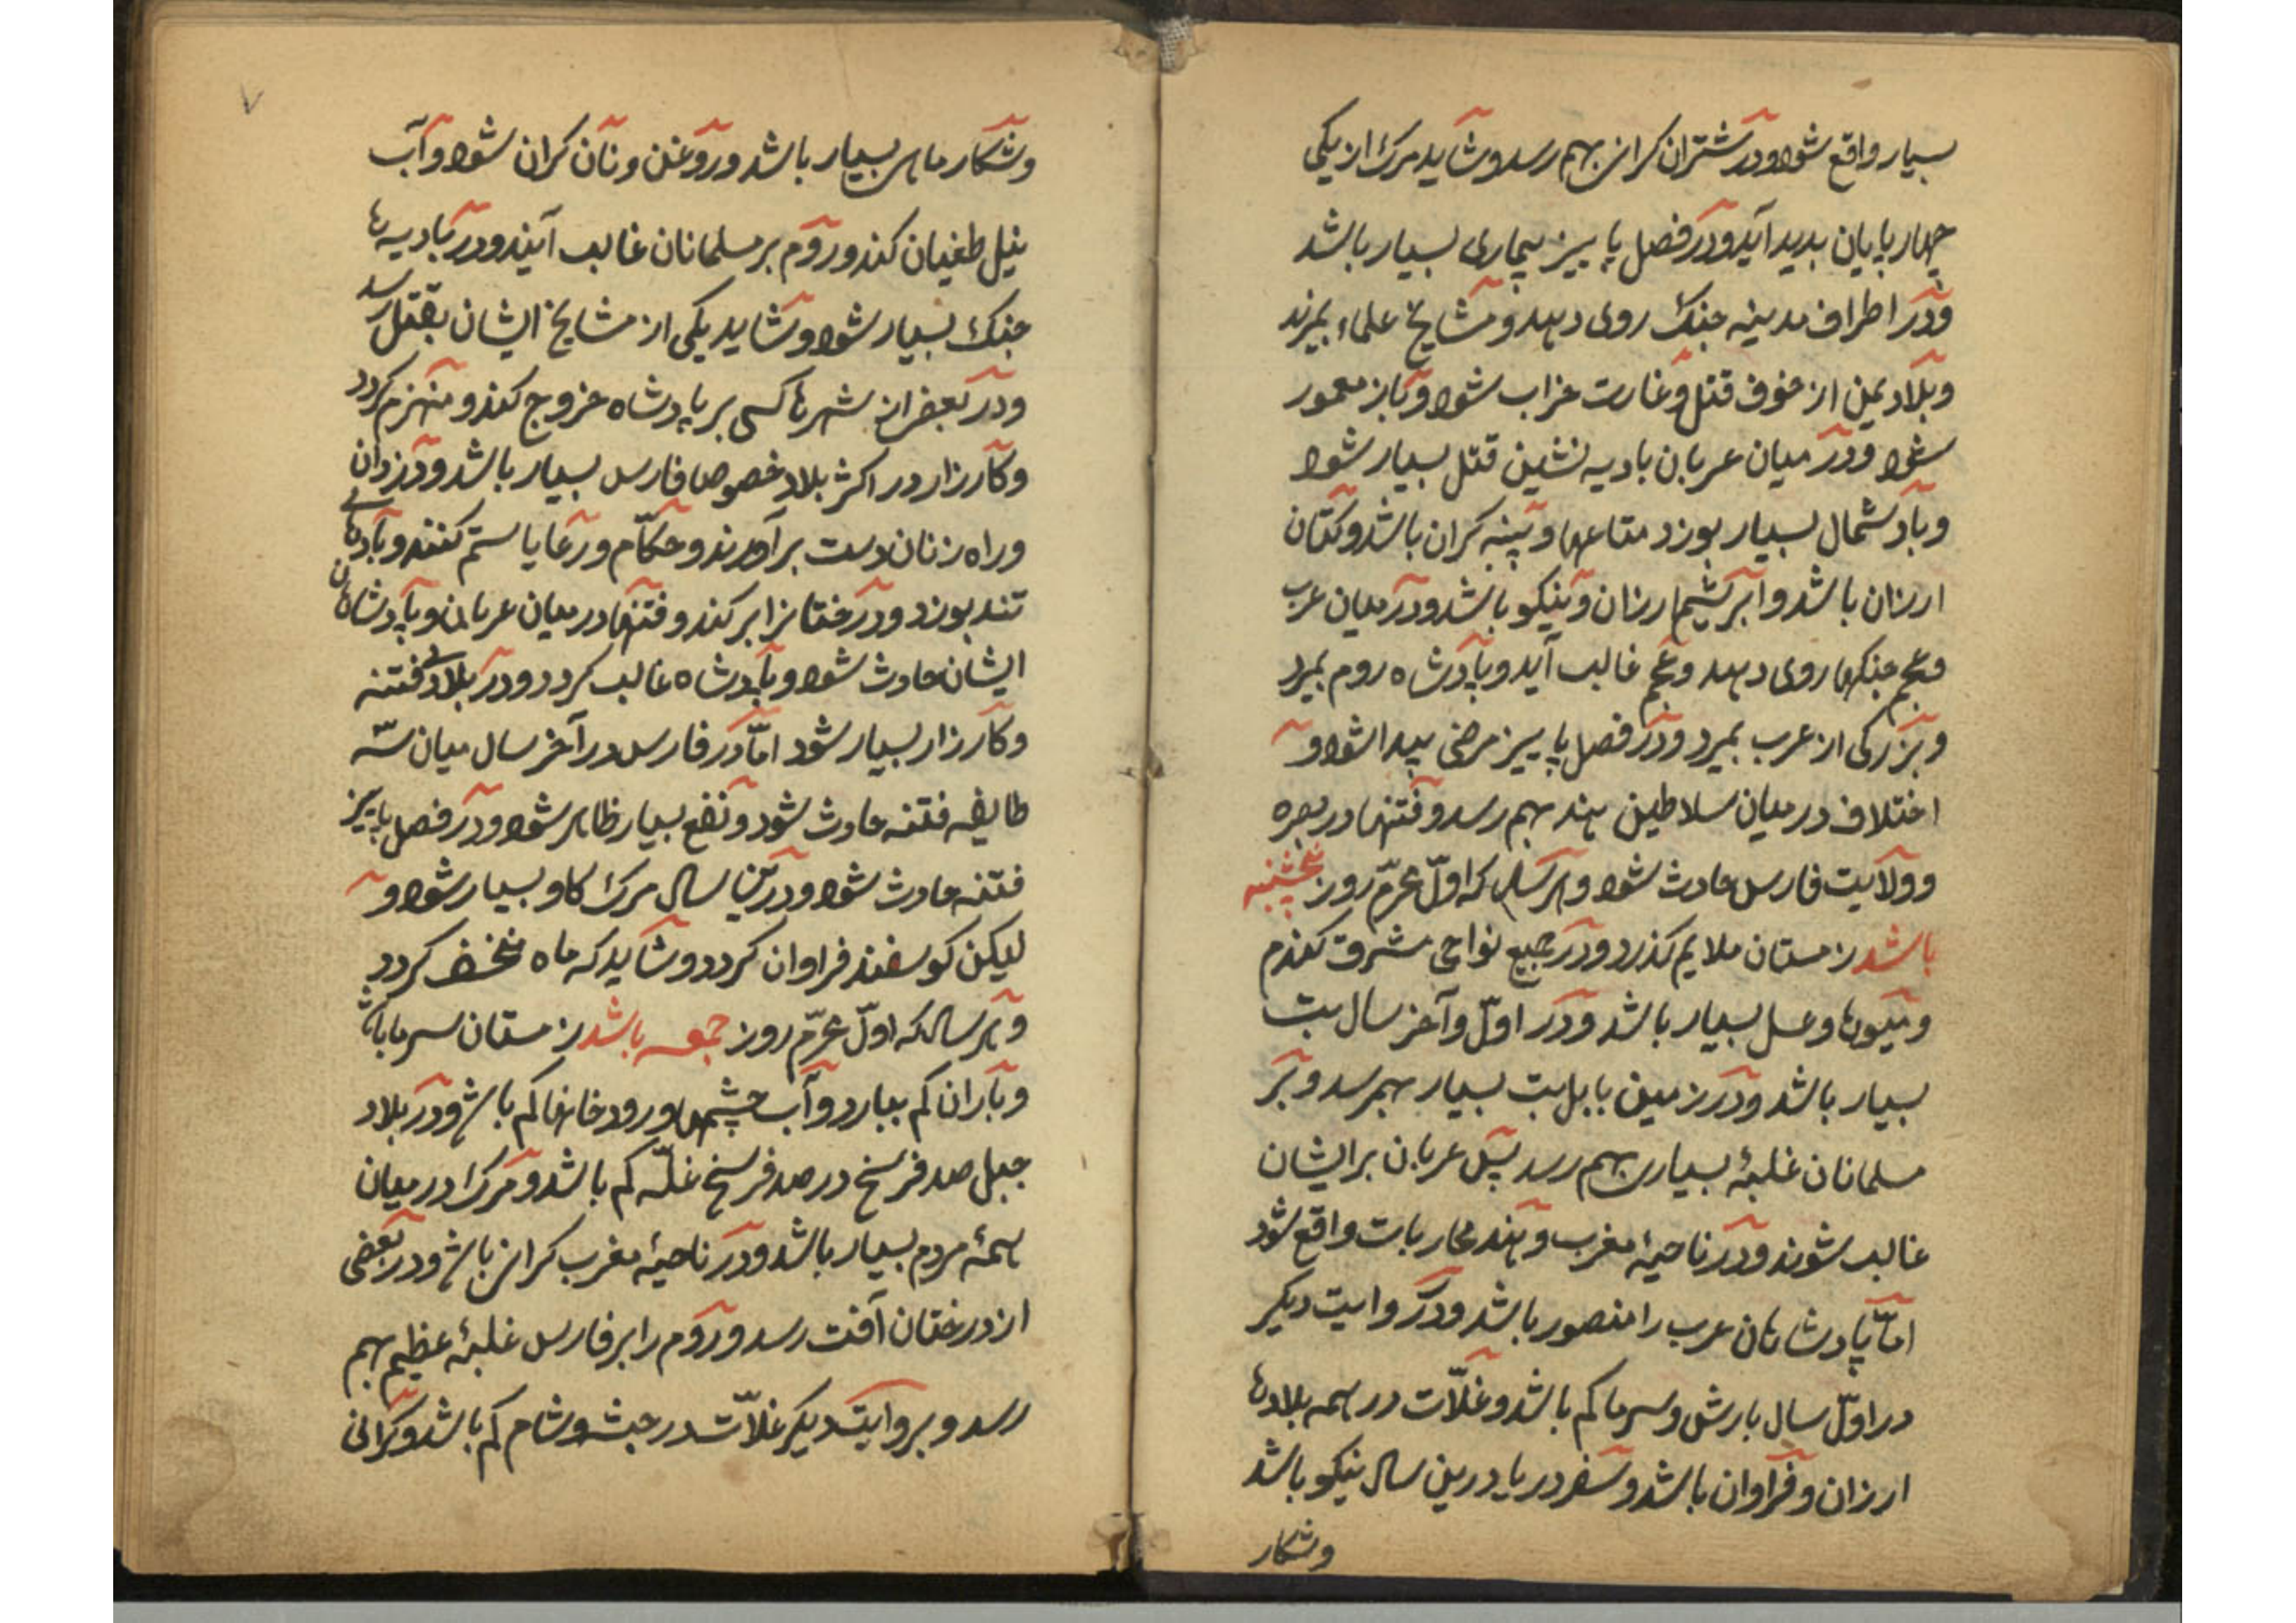 بسیار واقع شود و در شتران کرانی بهم رسد و شاید مرک از یکی
چهار پایان بدید آید و در فصل پاییز بیماری بسیار باشد
و در اطراف مدینه جنک روی دهد و مشایخ علماء بمیرند
و بلاد یمن از خوف قتل و غارت خراب شود و باز معمور
شود و در میان عربان بادیه نشین قتل بسیار شود
و باد شمال بسیار بوزد متاعها و پنبه کران باشد و کتان
ارزان باشد و ابریشم ارزان و نیکو باشد و در میان عرب
و عجم جنکها روی دهد و عجم غالب آید و پادشاه روم بمیرد
و بزرکی از عرب بمیرد و در فصل پاییز مرضی پیدا شود و
اختلاف در میان سلاطین هند بهم رسد و فتنها در بصره
و ولایت فارس حادث شود و هر سال که اول محرّم روز پنجشنبه
باشد زمستان ملایم کذرد و در جمیع نواحی مشرق کندم
و میوها و عسل بسیار باشد و در اوّل و آخر سال تب
بسیار باشد و در زمین بابل تب بسیار بهمرسد و بر
مسلمانان غلبهٔ بسیاری بهم رسد پس عربان بر ایشان
غالب شوند و در ناحیهٔ مغرب و هند محاربات واقع شود
امّا پادشاهان عرب را منصور باشد و در روایت دیکر
در اوّل سال بارش و سرما کم باشد و غلّات در همه بلادها
ارزان و فراوان باشد و سفر دریا درین سال نیکو باشد
و شکار
۷
و شکار ماهی بسیار باشد و روغن و نان کران شود و آب
نیل طغیان کند و روم بر مسلمانان غالب آیند و در بادیه ها
جنک بسیار شود و شاید یکی از مشایخ ایشان بقتل رسد
و در بعض از شهرها کسی بر پادشاه خروج کند و منهزم کردد
و کارزار در اکثر بلاد خصوصا فارس بسیار باشد و دزدان
و راه زنان دست برآورند و حکّام و رعایا ستم کنند و بادهای
تند بوزد و درختان را بر کند و فتنها در میان عربان و پادشاهان
ایشان حادث شود و پادشاه غالب کردد و در بلاد فتنه
و کارزار بسیار شود امّا در فارس در آخر سال میان سه
طایفه فتنه حادث شود و نفع بسیار ظاهر شود و در فصل پاییز
فتنه حادث شود و درین سال مرک کاو بسیار شود و
لیکن کوسفند فراوان کردد و شاید که ماه منخسف کردد
و هر سال که اوّل محرّم روز جمعه باشد زمستان سرما باشد
و باران کم ببارد و آب چشمها و رودخانها کم باشد و در بلاد
جبل صد فرسخ در صد فرسخ غلّه کم باشد و مرک در میان
همهٔ مردم بسیار باشد و در ناحیهٔ مغرب کرانی باشد و در بعضی
از درختان آفت رسد و روم را بر فارس غلبهٔ عظیم بهم
رسد و بروایت دیکر غلّات در حبشه و شام کم باشد و کرانی